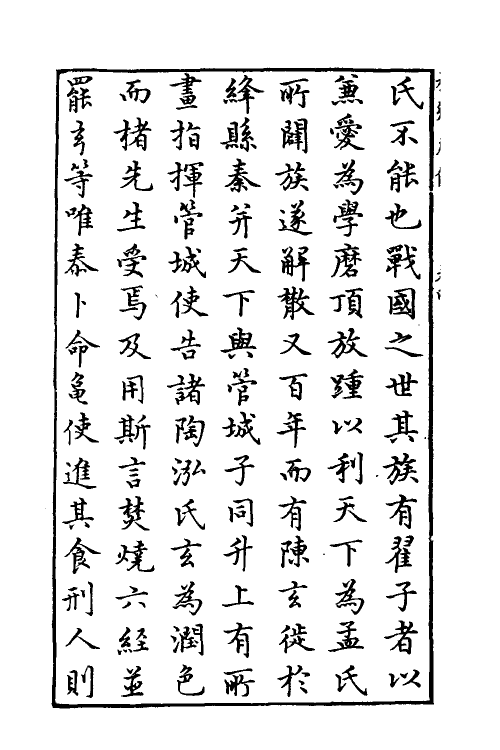 氏不能也戰國之世其族有翟子者以
兼愛為學磨頂放踵以利天下為孟氏
所闢族遂解散又百年而有陳玄徙於
絳縣秦并天下與管城子同升上有所
畫指揮管城使告諸陶泓氏玄為潤色
而楮先生受焉及用斯言焚燒六經並
罷玄等唯泰卜命龜使進其食刑人則